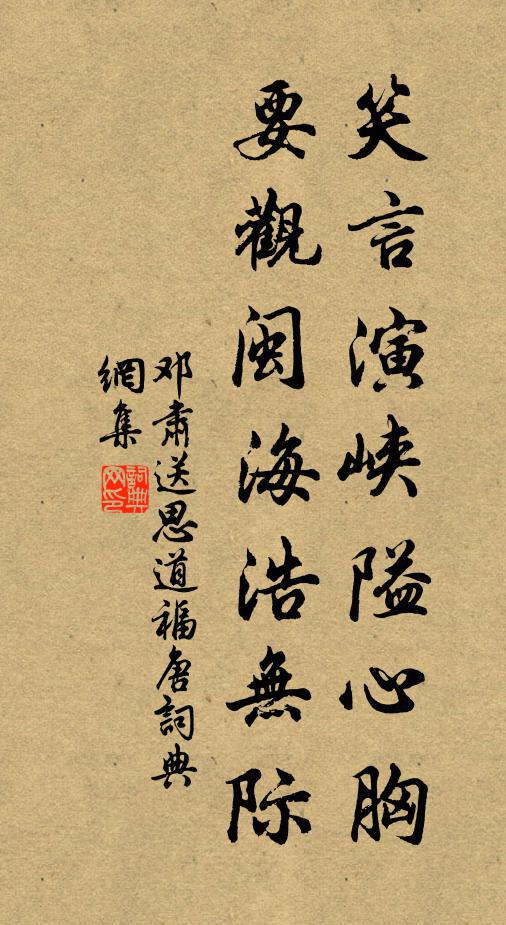 笑言演峡隘心胸
要觀閩海浩無际
邓肃送思道福唐詞典
網集
詞典
网印